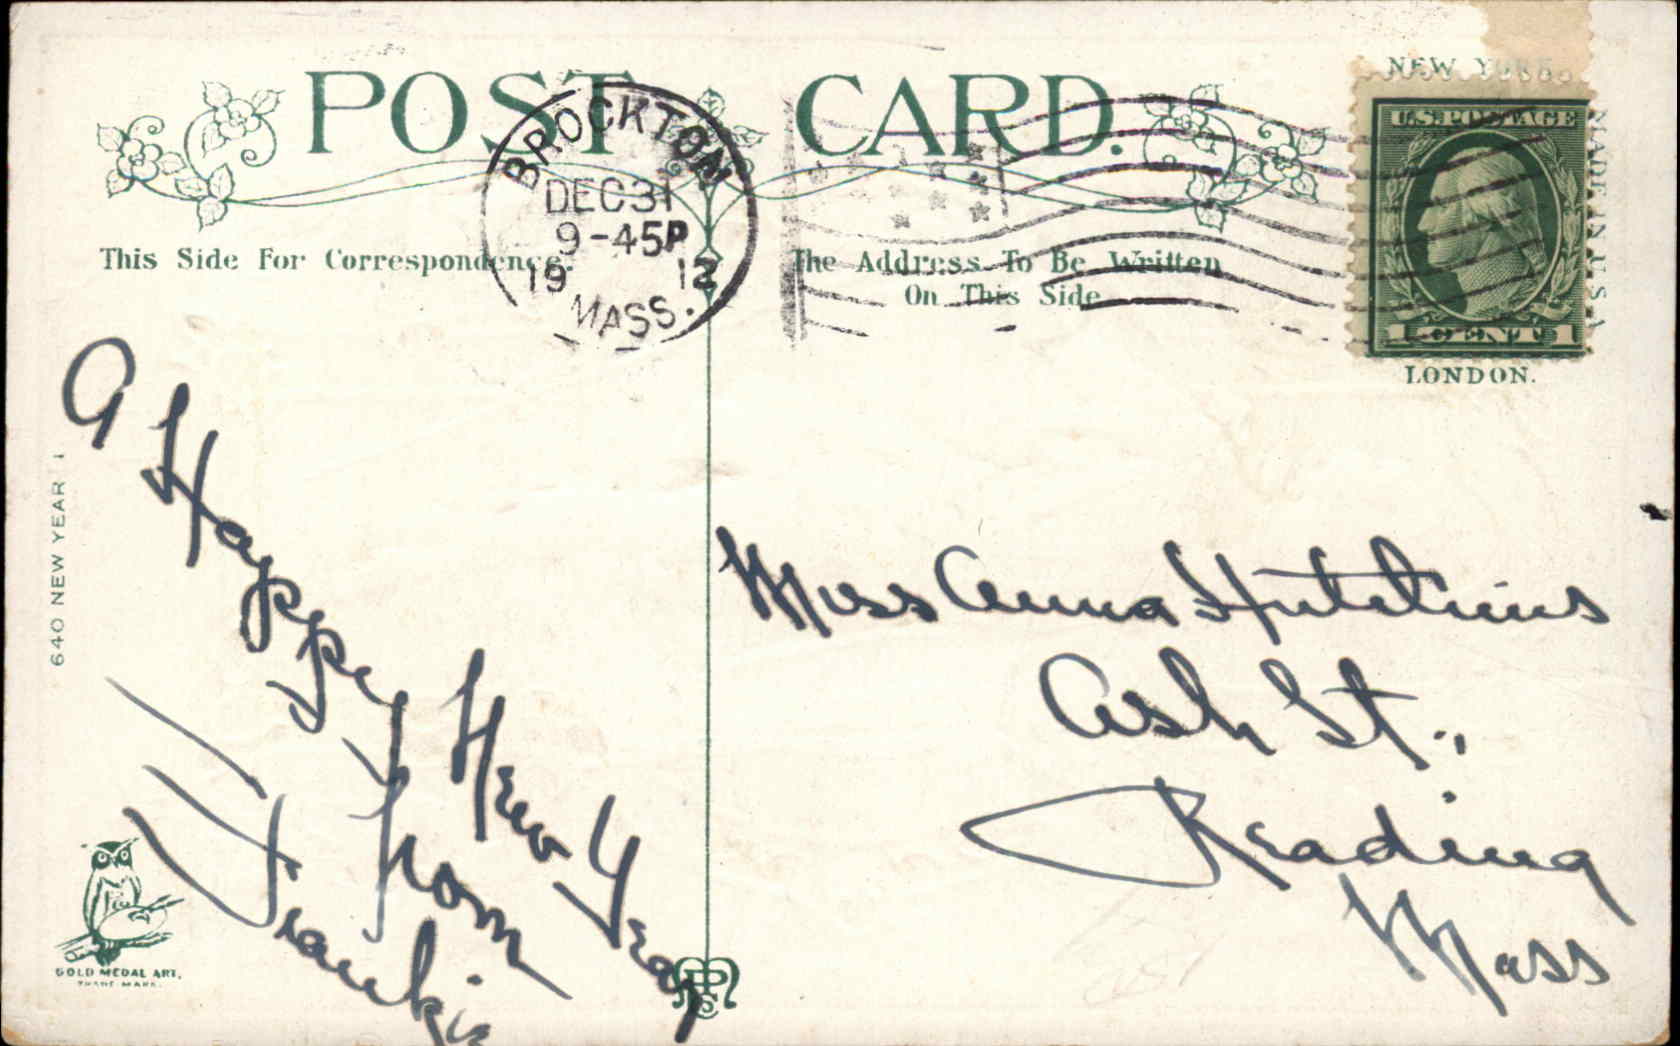 POST CARD.
BROCKTON
DEC 31
9-45P
19 12
MASS.
NEW YORK
MADE IN U.S.A.
U.S. POSTAGE
1 CENT 1
LONDON.
This Side For Correspondence.
The Address To Be Written
On This Side
640 NEW YEAR 1
A
Happy
New Year
From
Frankie
Miss Anna Hutchins
Ash St.,
Reading
Mass
GOLD MEDAL ART.
TRADE MARK.